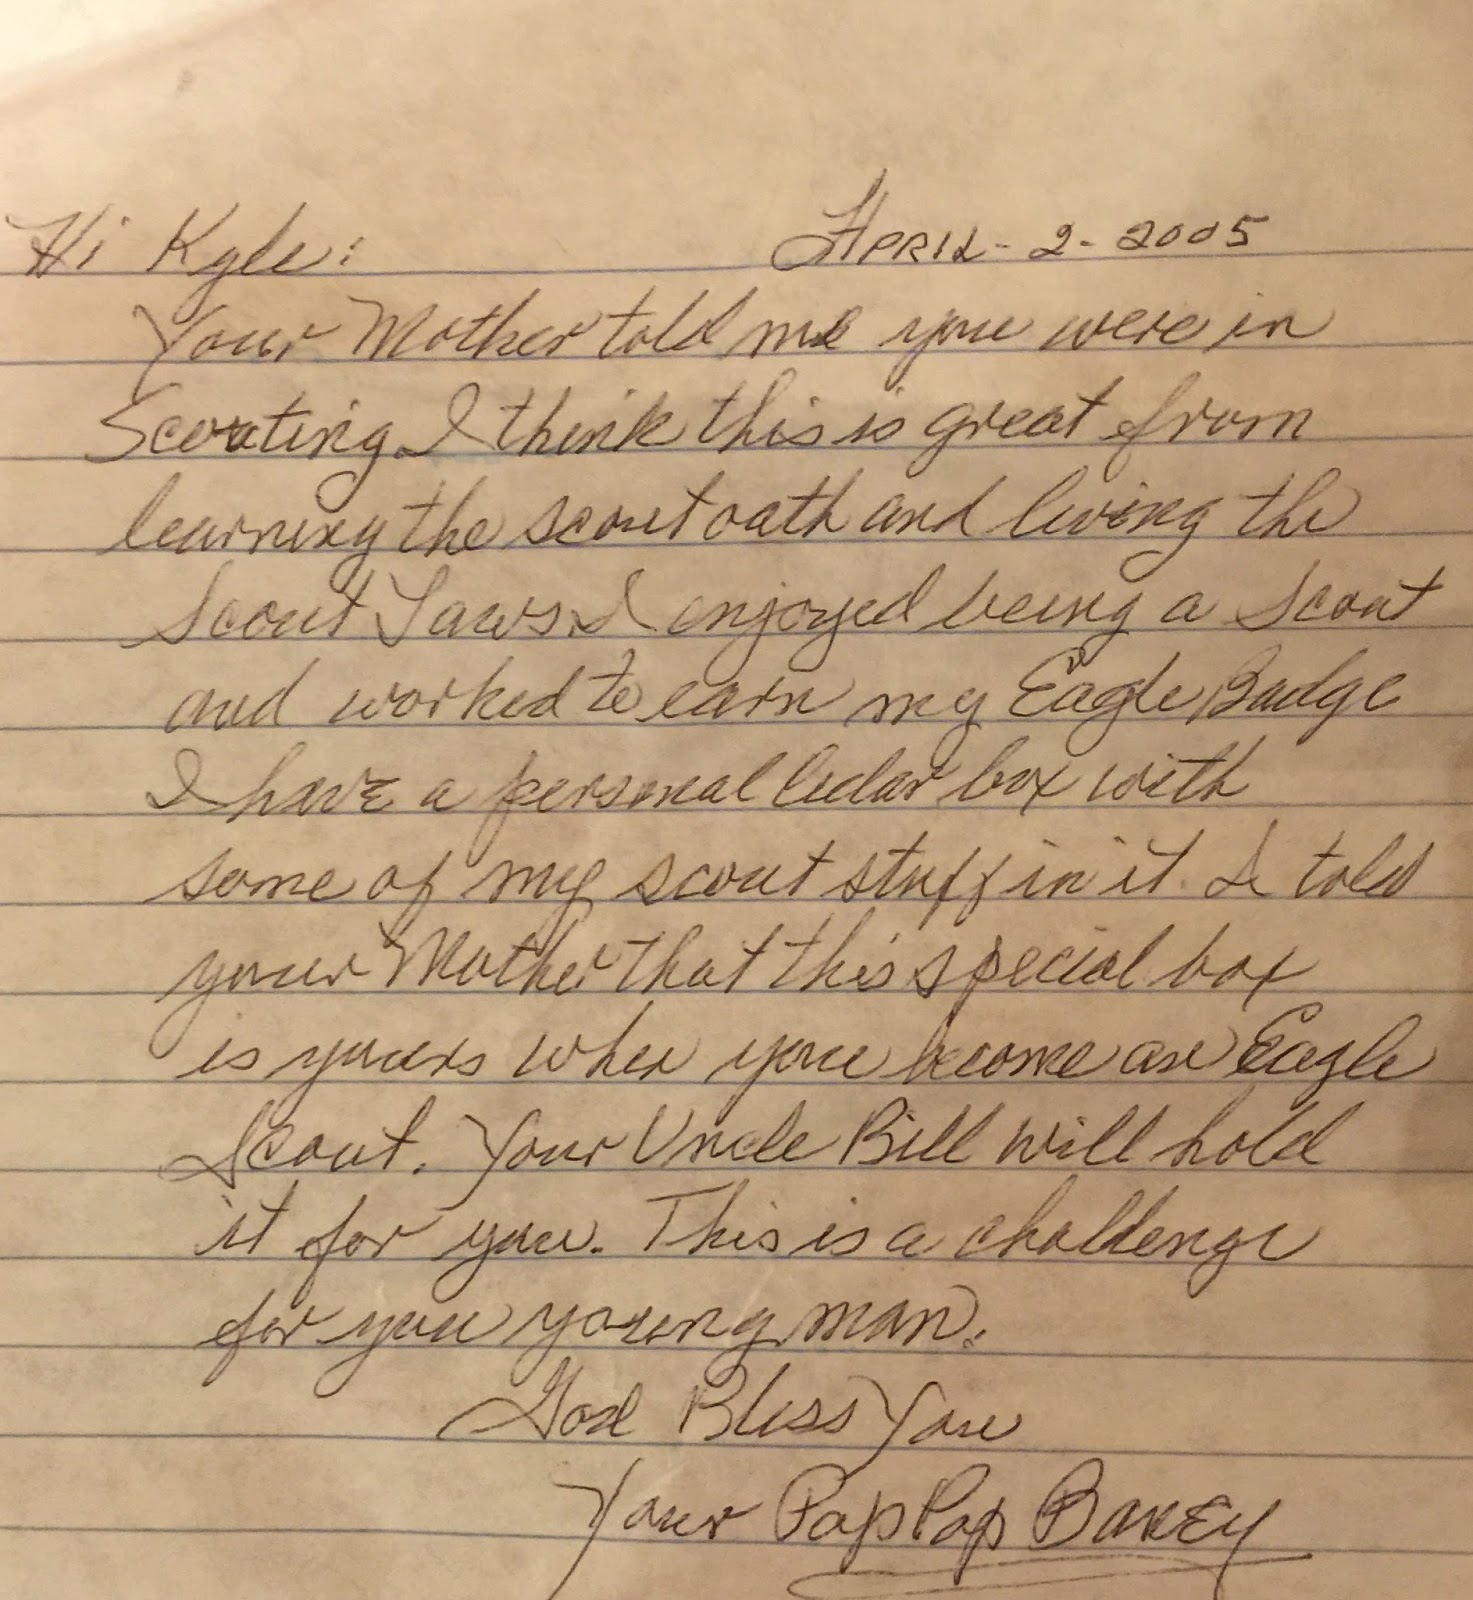 Hi Kyle: April - 2 - 2005
Your Mother told me you were in
Scouting. I think this is great from
learning the scout oath and living the
Scout Laws. I enjoyed being a Scout
and worked to earn my Eagle Badge
I have a personal Cedar box with
some of my scout stuff in it. I told
your Mother that this special box
is yours when you become an Eagle
Scout. Your Uncle Bill will hold
it for you. This is a challenge
for you young man.
God Bless You
Your Pap Pap